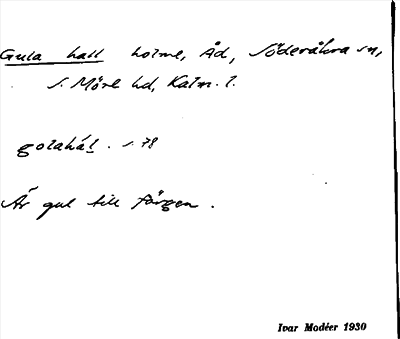 Gula hall holme, Åd, Söderåkra sn,
S. Möre hd, Kalm. l.
golahál . s. 78
Är gul till färgen .
Ivar Modéer 1930